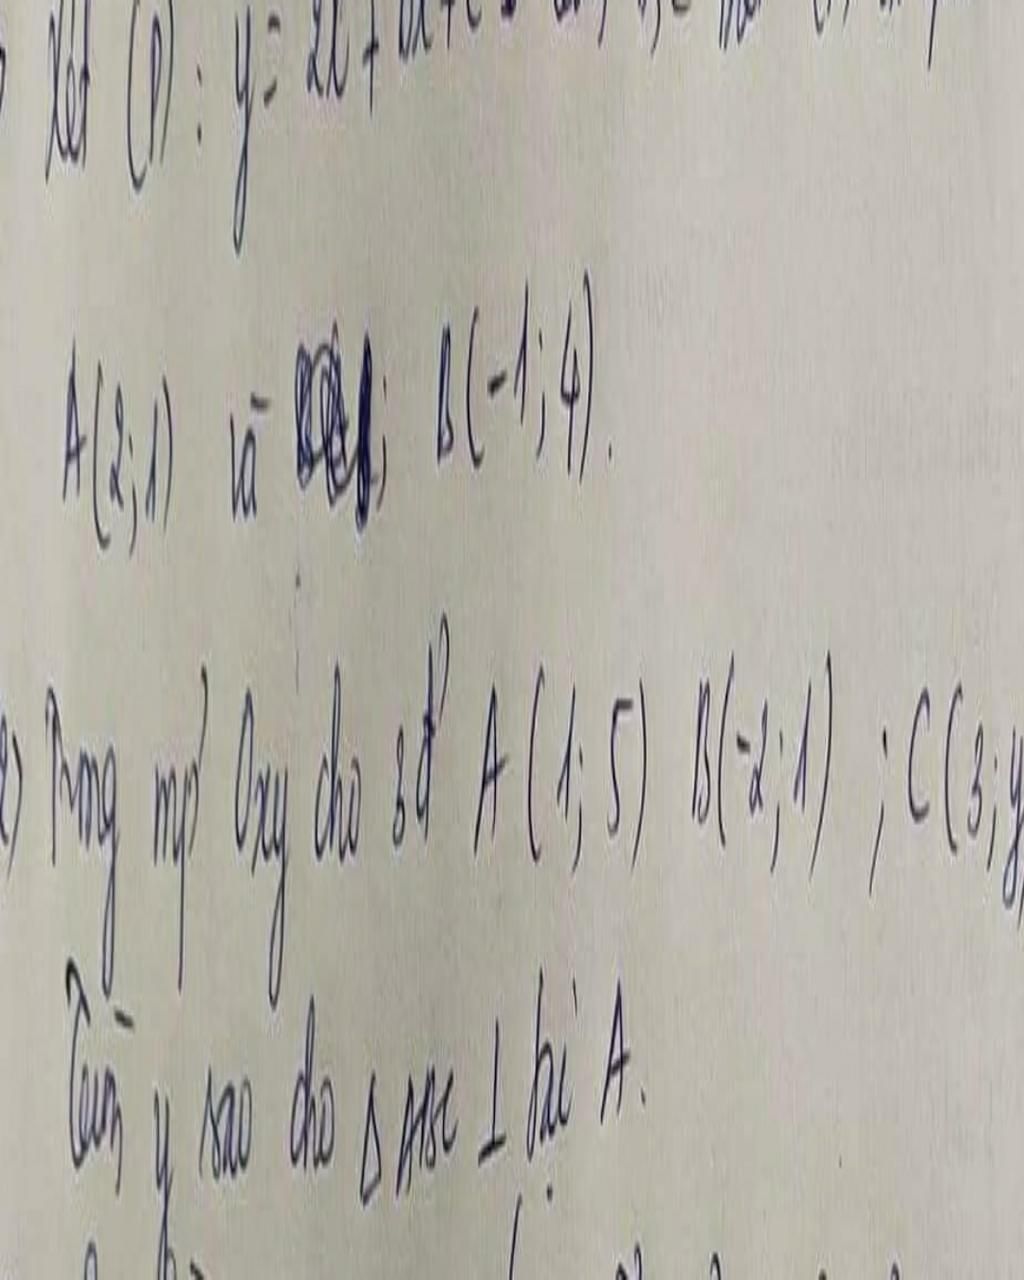 Xét (P): y = 2x² + bx + c
A(2;1) và B(-1;4).
2) Trong mp' Oxy cho 3đ' A(1;5) B(-2;1) ; C(3;y)
Tìm y sao cho Δ ABC ⊥ tại A.